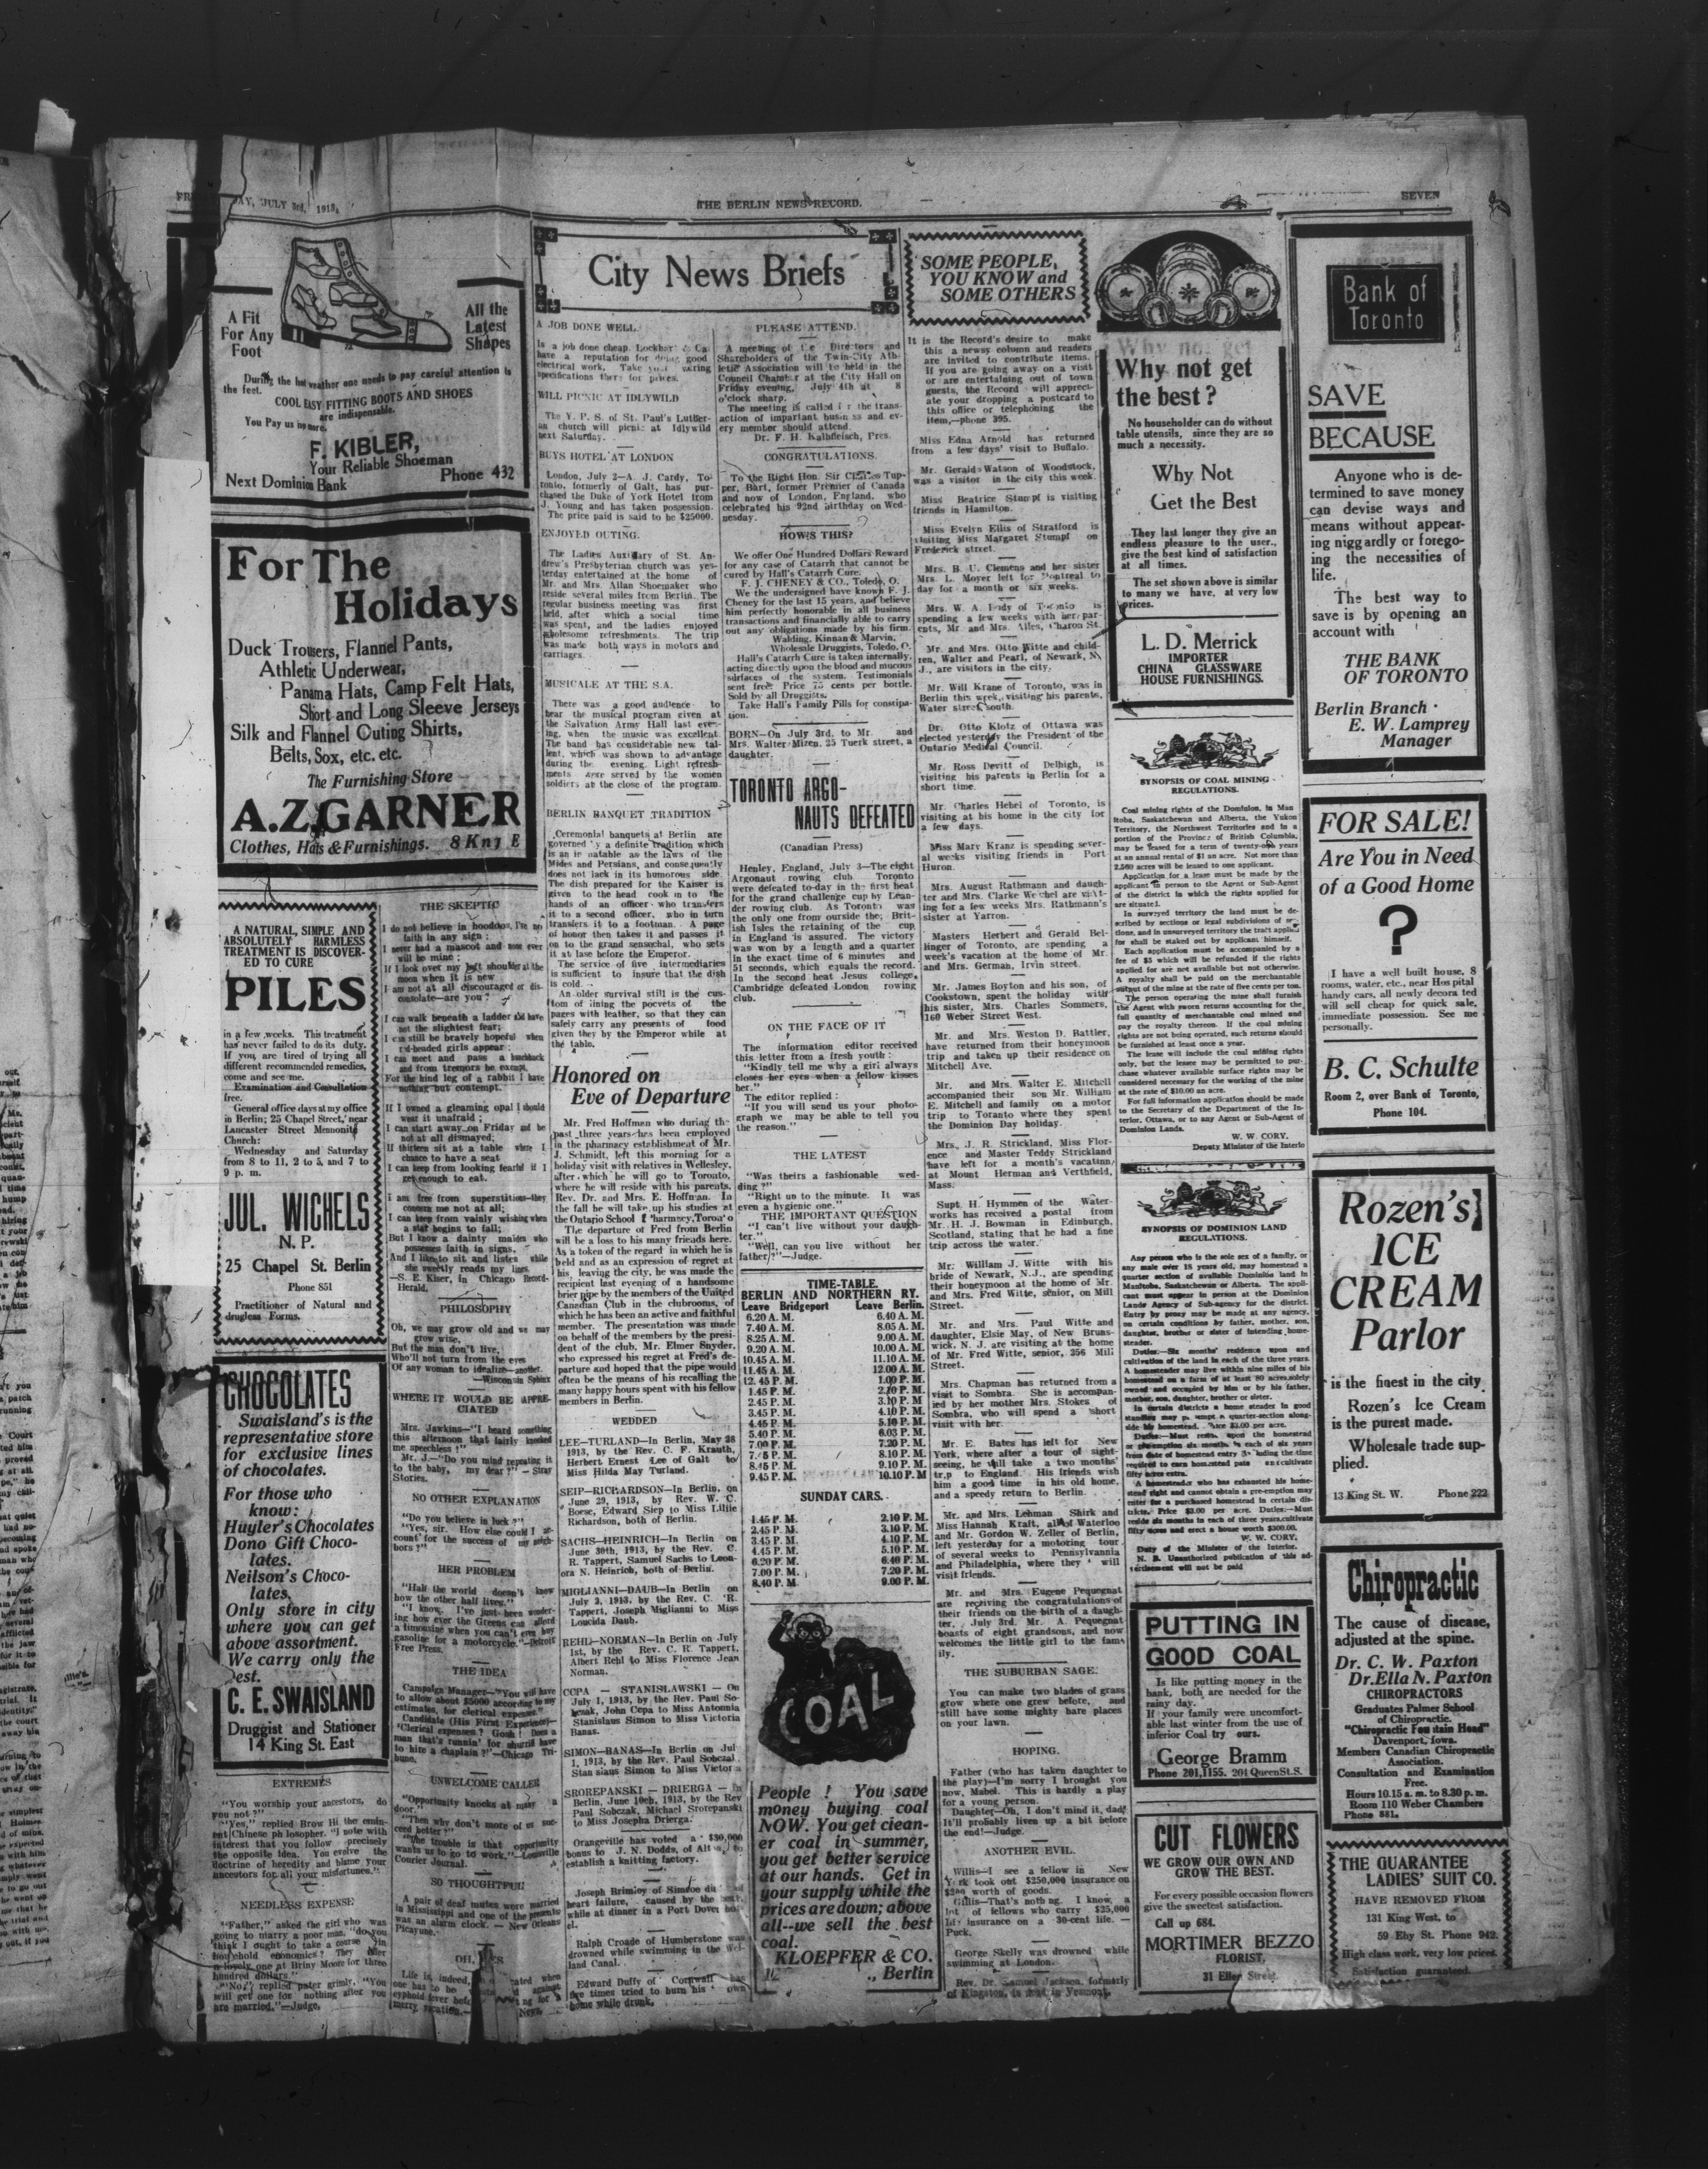 JULY 3rd, 1913.
THE BERLIN NEWS RECORD.
SEVEN
A Fit
For Any
Foot
All the
Latest
Shapes
During the hot weather one needs to pay careful attention is
the feet.
COOL EASY FITTING BOOTS AND SHOES
are indispensable.
You Pay us no more.
F. KIBLER,
Your Reliable Shoeman
Next Dominion Bank
Phone 432
For The
Holidays
Duck Trousers, Flannel Pants,
Athletic Underwear,
Panama Hats, Camp Felt Hats,
Short and Long Sleeve Jerseys
Silk and Flannel Outing Shirts,
Belts, Sox, etc. etc.
The Furnishing Store
A.Z. GARNER
Clothes, Hats & Furnishings. 8 King E
A NATURAL, SIMPLE AND
ABSOLUTELY HARMLESS
TREATMENT IS DISCOVER-
ED TO CURE
PILES
in a few weeks. This treatment
has never failed to do its duty.
If you are tired of trying all
different recommended remedies,
come and see me.
Examination and Consultation
free.
General office days at my office
in Berlin; 25 Chapel Street, near
Lancaster Street Mennonite
Church:
Wednesday and Saturday
from 8 to 11, 2 to 5, and 7 to
9 p. m.
JUL. WICHELS
N. P.
25 Chapel St. Berlin
Phone 851
Practitioner of Natural and
drugless Forms.
CHOCOLATES
Swaisland's is the
representative store
for exclusive lines
of chocolates.
For those who
know:
Huyler's Chocolates
Dono Gift Choco-
lates.
Neilson's Choco-
lates.
Only store in city
where you can get
above assortment.
We carry only the
est.
C. E. SWAISLAND
Druggist and Stationer
14 King St. East
EXTREMES
"You worship your ancestors, do
you not?"
"Yes," replied Brow Hi the emin-
ent Chinese philosopher. "I note with
interest that you follow precisely
the opposite idea. You evolve the
doctrine of heredity and blame your
ancestors for all your misfortunes."
NEEDLESS EXPENSE
"Father," asked the girl who was
going to marry a poor man, "do you
think I ought to take a course in
household economics? They offer
a lovely one at Briny Moore for three
hundred dollars."
"No," replied pater grimly. "You
will get one for nothing after you
are married."—Judge.
THE SKEPTIC
I do not believe in hoodoos, I've no
faith in any sign;
I never had a mascot and none ever
will be mine;
If I look over my left shoulder at the
moon when it is new
I am not at all discouraged or dis-
consolate—are you?
I can walk beneath a ladder and have
not the slightest fear;
I can still be bravely hopeful when
red-headed girls appear;
I can meet and pass a hunchback
and from tremors be exempt,
For the hind leg of a rabbit I have
nothing but contempt.
If I owned a gleaming opal I should
wear it unafraid;
I can start away on Friday and be
not at all dismayed;
If thirteen sit at a table where I
chance to have a seat
I can keep from looking fearful if I
get enough to eat.
I am free from superstitions—they
concern me not at all;
I can keep from vainly wishing when
a star begins to fall;
But I know a dainty maiden who
possesses faith in signs,
And I like to sit and listen while
she sweetly reads my lines.
—S. E. Kiser, in Chicago Record-
Herald.
PHILOSOPHY
Oh, we may grow old and we may
grow wise,
But the man don't live,
Who'll not turn from the eyes
Of any woman to idealize—another.
—Wisconsin Sphinx
WHERE IT WOULD BE APPRE-
CIATED
Mrs. Jawkins—"I heard something
this afternoon that fairly knocked
me speechless!"
Mr. J.—"Do you mind repeating it
to the baby, my dear?" — Stray
Stories.
NO OTHER EXPLANATION
"Do you believe in luck?"
"Yes, sir. How else could I ac-
count for the success of my neigh-
bors?"
HER PROBLEM
"Half the world doesn't know
how the other half lives."
"I know. I've just been wonder-
ing how ever the Greens can afford
a limousine when you can't even buy
gasoline for a motorcycle."—Detroit
Free Press.
THE IDEA
Campaign Manager—"You will have
to allow about $5000 according to my
estimates, for clerical expenses."
Candidate (His First Experience)—
"Clerical expenses? Gosh! Does a
man that's runnin' for sheriff have
to hire a chaplain?"—Chicago Tri-
bune.
UNWELCOME CALLER
"Opportunity knocks at many a
door."
"Then why don't more of us suc-
ceed better?"
"The trouble is that opportunity
wants us to go to work."—Louisville
Courier Journal.
SO THOUGHTFUL!
A pair of deaf mutes were married
in Mississippi and one of the presents
was an alarm clock. — New Orleans
Picayune.
Life is, indeed,
one has to be
typhoid fever befo
marry vacation.—
City News Briefs
A JOB DONE WELL.
Is a job done cheap. Lockhart & Co.
have a reputation for doing good
electrical work. Take your wiring
specifications there for prices.
WILL PICNIC AT IDLYWILD
The Y. P. S. of St. Paul's Luther-
an church will picnic at Idlywild
next Saturday.
BUYS HOTEL AT LONDON
London, July 2—A. J. Cardy, To-
ronto, formerly of Galt, has pur-
chased the Duke of York Hotel from
J. Young and has taken possession.
The price paid is said to be $25000.
ENJOYED OUTING.
The Ladies Auxiliary of St. An-
drew's Presbyterian church was yes-
terday entertained at the home of
Mr. and Mrs. Allan Shoemaker who
reside several miles from Berlin. The
regular business meeting was first
held, after which a social time
was spent, and the ladies enjoyed
wholesome refreshments. The trip
was made both ways in motors and
carriages.
MUSICALE AT THE S.A.
There was a good audience to
hear the musical program given at
the Salvation Army Hall last even-
ing, when the music was excellent.
The band has considerable new tal-
lent, which was shown to advantage
during the evening. Light refresh-
ments were served by the women
soldiers at the close of the program.
BERLIN BANQUET TRADITION
Ceremonial banquets at Berlin are
governed by a definite tradition which
is as immutable as the laws of the
Mides and Persians, and consequently
does not lack in its humorous side.
The dish prepared for the Kaiser is
given to the head cook in to the
hands of an officer who transfers
it to a second officer, who in turn
transfers it to a footman. A page
of honor then takes it and passes it
on to the grand seneschal, who sets
it at lase before the Emperor.
The service of five intermediaries
is sufficient to insure that the dish
is cold.
An older survival still is the cus-
tom of lining the pockets of the
pages with leather, so that they can
safely carry any presents of food
given they by the Emperor while at
the table.
Honored on
Eve of Departure
Mr. Fred Hoffman who during th
past three years has been employed
in the pharmacy establishment of Mr.
J. Schmidt, left this morning for a
holiday visit with relatives in Wellesley,
after which he will go to Toronto,
where he will reside with his parents,
Rev. Dr. and Mrs. E. Hoffman. In
the fall he will take up his studies at
the Ontario School f Pharmcey, Toronto
The departure of Fred from Berlin
will be a loss to his many friends here.
As a token of the regard in which he is
held and as an expression of regret at
his leaving the city, he was made the
recipient last evening of a handsome
brier pipe by the members of the United
Canadian Club in the clubrooms, of
which he has been an active and faithful
member. The presentation was made
on behalf of the members by the presi-
dent of the club, Mr. Elmer Snyder,
who expressed his regret at Fred's de-
parture and hoped that the pipe would
often be the means of his recalling the
many happy hours spent with his fellow
members in Berlin.
WEDDED
LEE—TURLAND—In Berlin, May 28
1913, by the Rev. C. F. Krauth,
Herbert Ernest Lee of Galt to
Miss Hilda May Turland.
SEIP—RICHARDSON—In Berlin, on
June 29, 1913, by Rev. W. C.
Boese, Edward Siep to Miss Lillie
Richardson, both of Berlin.
SACHS—HEINRICH—In Berlin on
June 30th, 1913, by the Rev. C.
R. Tappert, Samuel Sachs to Leon-
ora N. Heinrich, both of Berlin.
MIGLIANNI—DAUB—In Berlin on
July 2, 1913, by the Rev. C. R.
Tappert, Joseph Miglianni to Miss
Loucida Daub.
REHL—NORMAN—In Berlin on July
1st, by the Rev. C. R. Tappert,
Albert Rehl to Miss Florence Jean
Norman.
CCPA — STANISLAWSKI — On
July 1, 1913, by the Rev. Paul So-
bczak, John Ccpa to Miss Antonnia
Stanislaus Simon to Miss Victoria
Banas.
SIMON—BANAS—In Berlin on Jul
1, 1913, by the Rev. Paul Sobczal
Stanslaus Simon to Miss Victoria
SROREPANSKI — DRIERGA — In
Berlin, June 10th, 1913, by the Rev
Paul Sobczak, Michael Srorepanski
to Miss Josepha Drierga.
Orangeville has voted a $30,000
bonus to J. N. Dodds, of Alton, to
establish a knitting factory.
Joseph Brimloy of Simcoe died of
heart failure, caused by the heat,
while at dinner in a Port Dover hot
el.
Ralph Croade of Humberstone was
drowned while swimming in the Wel-
land Canal.
Edward Duffy of Cornwall has
five times tried to burn his own
home while drunk.
PLEASE ATTEND.
A meeting of the Directors and
Shareholders of the Twin-City Ath-
letic Association will be held in the
Council Chamber at the City Hall on
Friday evening, July 4th at 8
o'clock sharp.
The meeting is called for the trans-
action of important business and ev-
ery member should attend.
Dr. F. H. Kalbfleisch, Pres.
CONGRATULATIONS.
To the Right Hon. Sir Charles Tup-
per, Bart, former Premier of Canada
and now of London, England, who
celebrated his 92nd birthday on Wed-
nesday.
HOW'S THIS?
We offer One Hundred Dollars Reward
for any case of Catarrh that cannot be
cured by Hall's Catarrh Cure.
F. J. CHENEY & CO., Toledo, O.
We the undersigned have known F. J.
Cheney for the last 15 years, and believe
him perfectly honorable in all business
transactions and financially able to carry
out any obligations made by his firm.
Walding, Kinnan & Marvin,
Wholesale Druggists, Toledo, O.
Hall's Catarrh Cure is taken internally,
acting directly upon the blood and mucous
surfaces of the system. Testimonials
sent free Price 75 cents per bottle.
Sold by all Druggists.
Take Hall's Family Pills for constipa-
tion.
BORN—On July 3rd, to Mr. and
Mrs. Walter Mizen, 25 Tuerk street, a
daughter.
TORONTO ARGO-
NAUTS DEFEATED
(Canadian Press)
Henley, England, July 3—The eight
Argonaut rowing club Toronto
were defeated to-day in the first heat
for the grand challenge cup by Lean-
der rowing club. As Toronto was
the only one from ourside the; Brit-
ish Isles the retaining of the cup
in England is assured. The victory
was won by a length and a quarter
in the exact time of 6 minutes and
51 seconds, which equals the record.
In the second heat Jesus college,
Cambridge defeated London rowing
club.
ON THE FACE OF IT
The information editor received
this letter from a fresh youth:
"Kindly tell me why a girl always
closes her eyes when a fellow kisses
her."
The editor replied:
"If you will send us your photo-
graph we may be able to tell you
the reason."
THE LATEST
"Was theirs a fashionable wed-
ding?"
"Right up to the minute. It was
even a hygienic one."
THE IMPORTANT QUESTION
"I can't live without your daugh-
ter."
"Well, can you live without her
father?"—Judge.
TIME-TABLE.
BERLIN AND NORTHERN RY.
Leave Bridgeport Leave Berlin.
6.20 A. M. 6.40 A. M.
7.40 A. M. 8.05 A. M.
8.25 A. M. 9.00 A. M.
9.20 A. M. 10.00 A. M.
10.45 A. M. 11.10 A. M.
11.45 A. M. 12.00 A. M.
12.45 P. M. 1.00 P. M.
1.45 P. M. 2.10 P. M.
2.45 P. M. 3.10 P. M.
3.45 P. M. 4.10 P. M.
4.45 P. M. 5.10 P. M.
5.40 P. M. 6.03 P. M.
7.00 P. M. 7.20 P. M.
7.45 P. M. 8.10 P. M.
8.45 P. M. 9.10 P. M.
9.45 P. M. 10.10 P. M
SUNDAY CARS.
1.45 P. M. 2.10 P. M.
2.45 P. M. 3.10 P. M.
3.45 P. M. 4.10 P. M.
4.45 P. M. 5.10 P. M.
6.20 P. M. 6.40 P. M.
7.00 P. M. 7.20 P. M.
8.40 P. M. 9.00 P. M.
COAL
People! You save
money buying coal
NOW. You get clean-
er coal in summer,
you get better service
at our hands. Get in
your supply while the
prices are down; above
all--we sell the best
coal.
KLOEPFER & CO.
Berlin
SOME PEOPLE,
YOU KNOW and
SOME OTHERS
It is the Record's desire to make
this a newsy column and readers
are invited to contribute items.
If you are going away on a visit
or are entertaining out of town
guests, the Record will appreci-
ate your dropping a postcard to
this office or telephoning the
item,—phone 395.
Miss Edna Arnold has returned
from a few days' visit to Buffalo.
Mr. Gerald Watson of Woodstock,
was a visitor in the city this week.
Miss Beatrice Stumpf is visiting
friends in Hamilton.
Miss Evelyn Ellis of Stratford is
visiting Miss Margaret Stumpf on
Frederick street.
Mrs. B. U. Clemens and her sister
Mrs. L. Moyer left for Montreal to
day for a month or six weeks.
Mrs. W. A. Lody of Toronto is
spending a few weeks with her par-
ents, Mr. and Mrs. Alles, Charon St.
Mr. and Mrs. Otto Witte and child-
ren, Walter and Pearl, of Newark, N
J., are visitors in the city.
Mr. Will Krane of Toronto, was in
Berlin this week, visiting his parents,
Water street south.
Dr. Otto Klotz of Ottawa was
elected yesterday the President of the
Ontario Medical Council.
Mr. Ross Devitt of Delhigh, is
visiting his parents in Berlin for a
short time.
Mr. Charles Hebel of Toronto, is
visiting at his home in the city for
a few days.
Miss Mary Kranz is spending sever-
al weeks visiting friends in Port
Huron.
Mrs. August Rathmann and daugh-
ter and Mrs. Clarke Weichel are visit-
ing for a few weeks Mrs. Rathmann's
sister at Yarron.
Masters Herbert and Gerald Bel-
linger of Toronto, are spending a
week's vacation at the home of Mr.
and Mrs. German, Irvin street.
Mr. James Boyton and his son, of
Cookstown, spent the holiday with
his sister, Mrs. Charles Sommers,
160 Weber Street West.
Mr. and Mrs. Weston D. Battler,
have returned from their honeymoon
trip and taken up their residence on
Mitchell Ave.
Mr. and Mrs. Walter E. Mitchell
accompanied their son Mr. William
E. Mitchell and family on a motor
trip to Toronto where they spent
the Dominion Day holiday.
Mrs. J. R. Strickland, Miss Flor-
ence and Master Teddy Strickland
have left for a month's vacation
at Mount Herman and Verthfield,
Mass.
Supt. H. Hymmen of the Water-
works has received a postal from
Mr. H. J. Bowman in Edinburgh,
Scotland, stating that he had a fine
trip across the water.
Mr. William J. Witte with his
bride of Newark, N.J., are spending
their honeymoon at the home of Mr.
and Mrs. Fred Witte, senior, on Mill
Street.
Mr. and Mrs. Paul Witte and
daughter, Elsie May, of New Bruns-
wick, N. J. are visiting at the home
of Mr. Fred Witte, senior, 256 Mill
Street.
Mrs. Chapman has returned from a
visit to Sombra. She is accompan-
ied by her mother Mrs. Stokes of
Sombra, who will spend a short
visit with her.
Mr. E. Bates has left for New
York, where after a tour of sight-
seeing, he will take a two months'
trip to England. His friends wish
him a good time in his old home,
and a speedy return to Berlin.
Mr. and Mrs. Lehman Shirk and
Miss Hannah Kraft, all of Waterloo
and Mr. Gordon W. Zeller of Berlin,
left yesterday for a motoring tour
of several weeks to Pennsylvannia
and Philadelphia, where they will
visit friends.
Mr. and Mrs. Eugene Pequegnat
are receiving the congratulations of
their friends on the birth of a daugh-
ter, July 3rd. Mr. A. Pequegnat
boasts of eight grandsons, and now
welcomes the little girl to the fam-
ily.
THE SUBURBAN SAGE.
You can make two blades of grass
grow where one grew before, and
still have some mighty bare places
on your lawn.
HOPING.
Father (who has taken daughter to
the play)—I'm sorry I brought you
now, Mabel. This is hardly a play
for a young person.
Daughter—Oh, I don't mind it, dad;
It'll probably liven up a bit before
the end!—Judge.
ANOTHER EVIL.
Willis—I see a fellow in New
York took out $250,000 insurance on
$200 worth of goods.
Gillis—That's nothing. I know a
lot of fellows who carry $25,000
life insurance on a 30-cent life. —
Puck.
George Skelly was drowned while
swimming at London.
Rev. Dr. Samuel Jackson, formerly
of Kingston, is dead in Vermont.
Why not get
the best?
No householder can do without
table utensils, since they are so
much a necessity.
Why Not
Get the Best
They last longer they give an
endless pleasure to the user,
give the best kind of satisfaction
at all times.
The set shown above is similar
to many we have, at very low
prices.
L. D. Merrick
IMPORTER
CHINA GLASSWARE
HOUSE FURNISHINGS.
SYNOPSIS OF COAL MINING
REGULATIONS.
Coal mining rights of the Dominion, in Man
itoba, Saskatchewan and Alberta, the Yukon
Territory, the Northwest Territories and in a
portion of the Province of British Columbia,
may be leased for a term of twenty-one years
at an annual rental of $1 an acre. Not more than
2,560 acres will be leased to one applicant.
Application for a lease must be made by the
applicant in person to the Agent or Sub-Agent
of the district in which the rights applied for
are situated.
In surveyed territory the land must be de-
scribed by sections or legal subdivisions of sec-
tions, and in unsurveyed territory the tract applied
for shall be staked out by applicant himself.
Each application must be accompanied by a
fee of $5 which will be refunded if the rights
applied for are not available but not otherwise.
A royalty shall be paid on the merchantable
output of the mine at the rate of five cents per ton.
The person operating the mine shall furnish
the Agent with sworn returns accounting for the
full quantity of merchantable coal mined and
pay the royalty thereon. If the coal mining
rights are not being operated, such returns should
be furnished at least once a year.
The lease will include the coal mining rights
only, but the lessee may be permitted to pur-
chase whatever available surface rights may be
considered necessary for the working of the mine
at the rate of $10.00 an acre.
For full information application should be made
to the Secretary of the Department of the In-
terior, Ottawa, or to any Agent or Sub-Agent of
Dominion Lands.
W. W. CORY,
Deputy Minister of the Interio
SYNOPSIS OF DOMINION LAND
REGULATIONS.
Any person who is the sole sex of a family, or
any male over 18 years old, may homestead a
quarter section of available Dominion land in
Manitoba, Saskatchewan or Alberta. The appli-
cant must appear in person at the Dominion
Lands Agency of Sub-agency for the district.
Entry by proxy may be made at any agency,
on certain conditions by father, mother, son,
daughter, brother or sister of intending home-
steader.
Duties:—Six months' residence upon and
cultivation of the land in each of the three years.
A homesteader may live within nine miles of his
homestead on a farm of at least 80 acres, solely
owned and occupied by him or by his father,
mother, son, daughter, brother or sister.
In certain districts a home steader in good
standing may pre-empt a quarter-section along-
side his homestead. Price $3.00 per acre.
A homesteader who has exhausted his home-
stead right and cannot obtain a pre-emption may
enter for a purchased homestead in certain dis-
tricts. Price $3.00 per acre. Duties:—Must
reside six months in each of three years, cultivate
fifty acres and erect a house worth $300.00.
W. W. CORY,
Duty of the Minister of the Interior.
N. B. Unauthorized publication of this ad-
vertisement will not be paid
PUTTING IN
GOOD COAL
Is like putting money in the
bank, both are needed for the
rainy day.
If your family were uncomfort-
able last winter from the use of
inferior Coal try ours.
George Bramm
Phone 201, 1155. 201 Queen St. S.
CUT FLOWERS
WE GROW OUR OWN AND
GROW THE BEST.
For every possible occasion flowers
give the sweetest satisfaction.
Call up 684.
MORTIMER BEZZO
FLORIST,
31 Ellen Street.
Bank of
Toronto
SAVE
BECAUSE
Anyone who is de-
termined to save money
can devise ways and
means without appear-
ing niggardly or forego-
ing the necessities of
life.
The best way to
save is by opening an
account with
THE BANK
OF TORONTO
Berlin Branch
E. W. Lamprey
Manager
FOR SALE!
Are You in Need
of a Good Home
?
I have a well built house, 8
rooms, water, etc., near Hospital
handy cars, all newly decorated
will sell cheap for quick sale,
immediate possession. See me
personally.
B. C. Schulte
Room 2, over Bank of Toronto,
Phone 104.
Rozen's
ICE
CREAM
Parlor
is the finest in the city
Rozen's Ice Cream
is the purest made.
Wholesale trade sup-
plied.
13 King St. W. Phone 222
Chiropractic
The cause of disease,
adjusted at the spine.
Dr. C. W. Paxton
Dr. Ella N. Paxton
CHIROPRACTORS
Graduates Palmer School
of Chiropractic.
"Chiropractic Fountain Head"
Davenport, Iowa.
Members Canadian Chiropractic
Association.
Consultation and Examination
Free.
Hours 10.15 a. m. to 8.30 p. m.
Room 110 Weber Chambers
Phone 881.
THE GUARANTEE
LADIES' SUIT CO.
HAVE REMOVED FROM
131 King West, to
59 Eby St. Phone 942.
High class work, very low prices.
Satisfaction guaranteed.